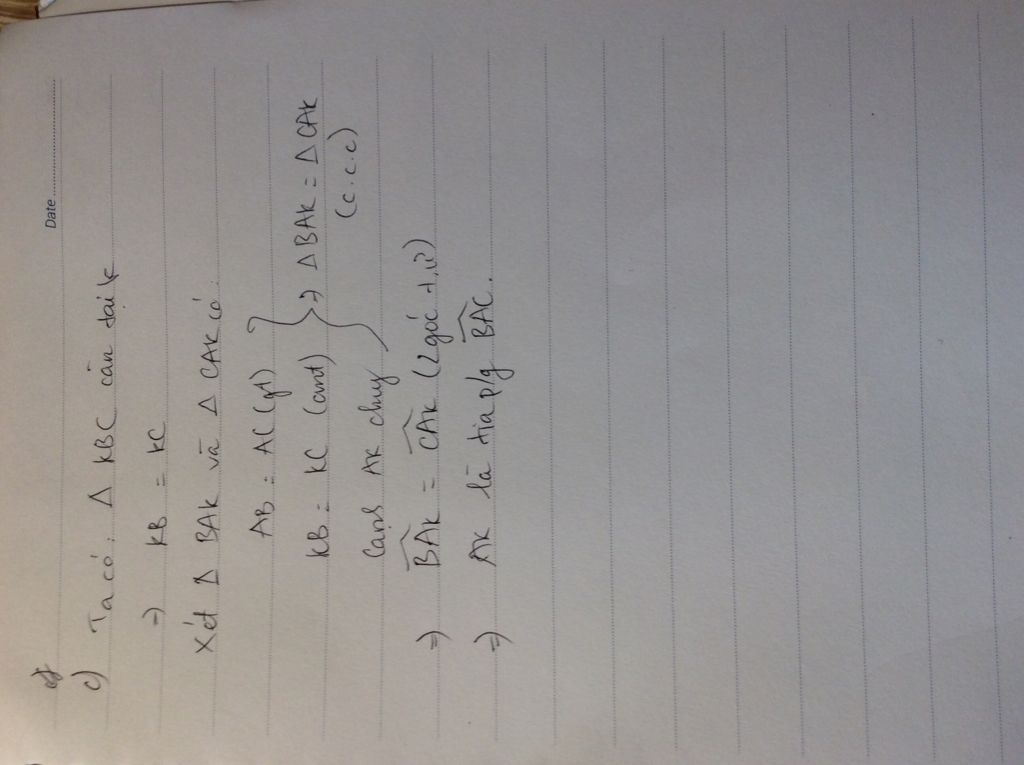 Date
c) Ta có: Δ KBC cân tại K
=> KB = KC
Xét Δ BAK và Δ CAK có:
AB = AC (gt)
KB = KC (cmt) => Δ BAK = Δ CAK
Cạnh AK chung (c.c.c)
=> \widehat{BAK} = \widehat{CAK} (2 góc t.ứ)
=> AK là tia p/g \widehat{BAC}.